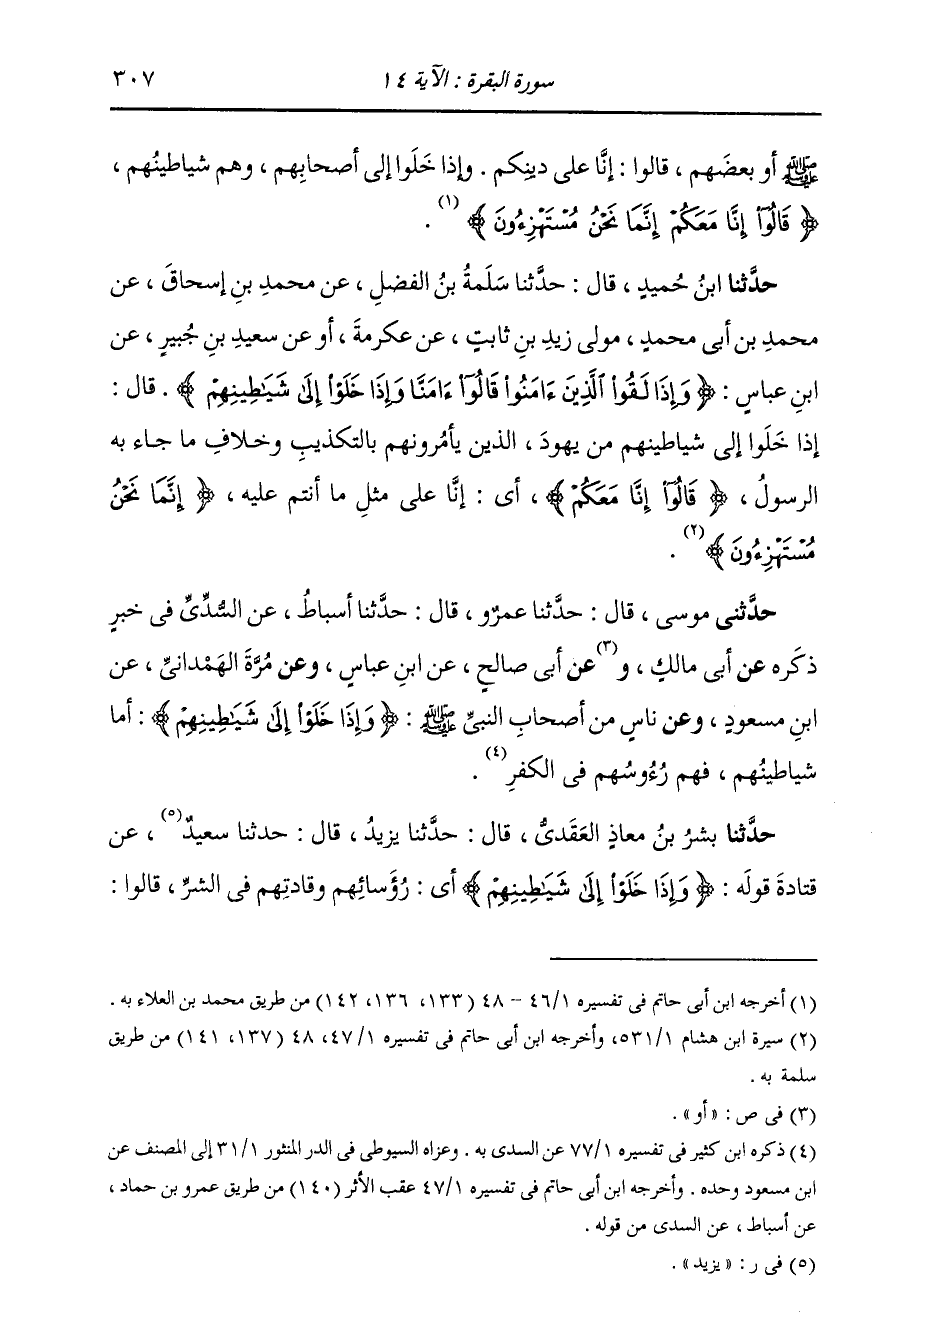 سورة البقرة : الآية ١٤ ٣٠٧
ﷺ أو بعضَهم ، قالوا : إنَّا على دينِكم . وإذا خَلَوا إلى أصحابِهم ، وهم شياطينُهم ،
﴿ قَالُوٓا۟ إِنَّا مَعَكُمْ إِنَّمَا نَحْنُ مُسْتَهْزِءُونَ ﴾ (١) .
حدَّثنا ابنُ حُميدٍ ، قال : حدَّثنا سَلَمةُ بنُ الفضلِ ، عن محمدِ بنِ إسحاقَ ، عن
محمدِ بن أبى محمدٍ ، مولى زيدِ بنِ ثابتٍ ، عن عكرمةَ ، أو عن سعيدِ بنِ جُبيرٍ ، عن
ابنِ عباسٍ : ﴿ وَإِذَا لَقُوا۟ ٱلَّذِينَ ءَامَنُوا۟ قَالُوٓا۟ ءَامَنَّا وَإِذَا خَلَوْا۟ إِلَىٰ شَيَٰطِينِهِمْ ﴾ . قال :
إذا خَلَوا إلى شياطينهم من يهودَ ، الذين يأمُرونهم بالتكذيبِ وخلافِ ما جاء به
الرسولُ ، ﴿ قَالُوٓا۟ إِنَّا مَعَكُمْ ﴾ ، أى : إنَّا على مثلِ ما أنتم عليه ، ﴿ إِنَّمَا نَحْنُ
مُسْتَهْزِءُونَ ﴾ (٢) .
حدَّثنى موسى ، قال : حدَّثنا عمرٌو ، قال : حدَّثنا أسباطُ ، عن السُّدِّىِّ فى خبرٍ
ذكَره عن أبى مالكٍ ، و(٣) عن أبى صالحٍ ، عن ابنِ عباسٍ ، وعن مُرَّةَ الهَمْدانىِّ ، عن
ابنِ مسعودٍ ، وعن ناسٍ من أصحابِ النبىِّ ﷺ : ﴿ وَإِذَا خَلَوْا۟ إِلَىٰ شَيَٰطِينِهِمْ ﴾ : أما
شياطينُهم ، فهم رُءُوسُهم فى الكفرِ (٤) .
حدَّثنا بشرُ بنُ معاذٍ العَقَدىُّ ، قال : حدَّثنا يزيدُ ، قال : حدثنا سعيدٌ (٥) ، عن
قتادةَ قولَه : ﴿ وَإِذَا خَلَوْا۟ إِلَىٰ شَيَٰطِينِهِمْ ﴾ أى : رُؤَسائِهم وقادتِهم فى الشرِّ ، قالوا :
(١) أخرجه ابن أبى حاتم فى تفسيره ١/ ٤٦ – ٤٨ (١٣٣، ١٣٦، ١٤٢) من طريق محمد بن العلاء به .
(٢) سيرة ابن هشام ١/ ٥٣١، وأخرجه ابن أبى حاتم فى تفسيره ١/ ٤٧، ٤٨ (١٣٧، ١٤١) من طريق
سلمة به .
(٣) فى ص : «أو» .
(٤) ذكره ابن كثير فى تفسيره ١/ ٧٧ عن السدى به . وعزاه السيوطى فى الدر المنثور ١/ ٣١ إلى المصنف عن
ابن مسعود وحده . وأخرجه ابن أبى حاتم فى تفسيره ١/ ٤٧ عقب الأثر (١٤٠) من طريق عمرو بن حماد ،
عن أسباط ، عن السدى من قوله .
(٥) فى ر : «يزيد» .